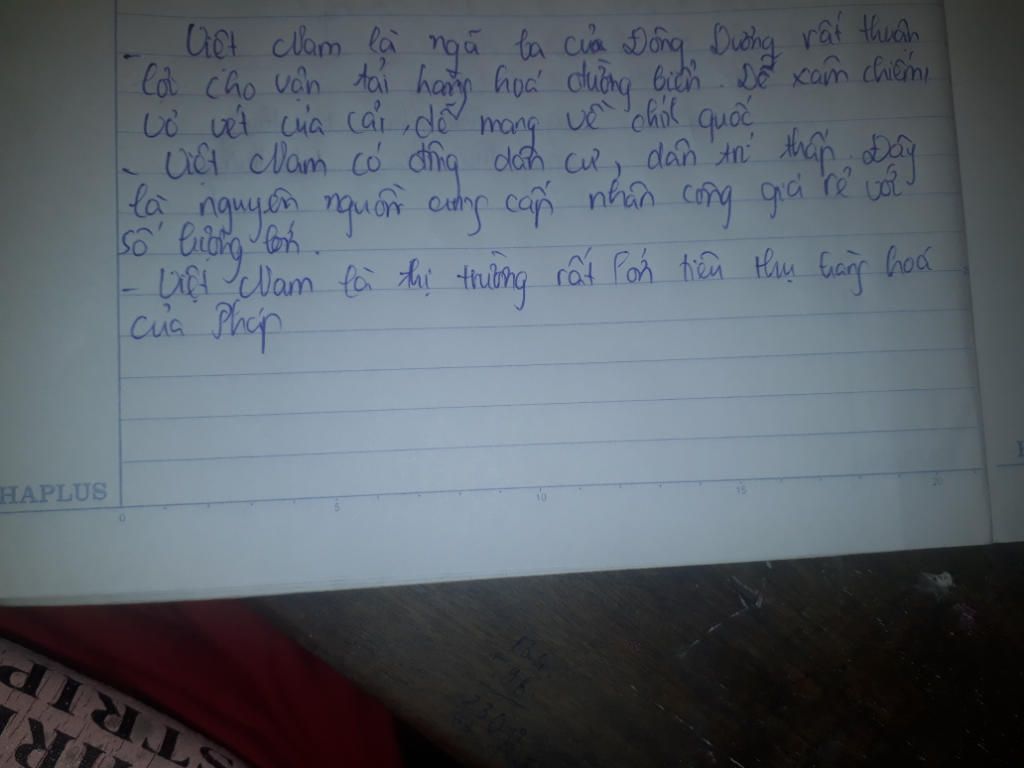 - Việt Nam là ngã ba của Đông Dương rất thuận
lợi cho vận tải hàng hoá đường biển. Dễ xâm chiếm,
vơ vét của cải, dễ mang về chính quốc
- Việt Nam có đông dân cư, dân trí thấp. Đây
là nguyên nguồn cung cấp nhân công giá rẻ với
số lượng lớn.
- Việt Nam là thị trường rất lớn tiêu thụ hàng hoá
của Pháp
HAPLUS
0 5 10 15 20
STRIP